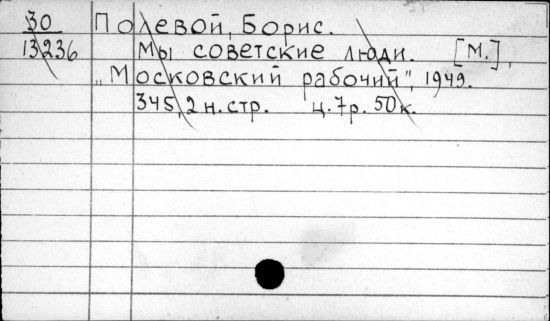 30 Полевой, Борис.
13236 Мы советские люди. [М.],
„Московский рабочий", 1949.
345, 2 н. стр. ц. 7 р. 50 к.